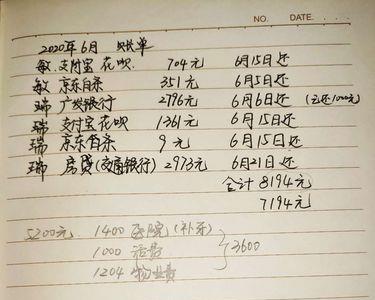 NO. DATE.
2020年6月 账单
敏 支付宝花呗 704元 6月15日还
敏 京东白条 351元 6月5日还
瑞 广发银行 2796元 6月6日还 (已还1000元)
瑞 支付宝花呗 1361元 6月15日还
瑞 京东白条 9元 6月15日还
瑞 房贷(交通银行) 2973元 6月21日还
合计 8194元
7194元
5200元 1400 医院(补牙)
1000 话费 3600
1204 物业费